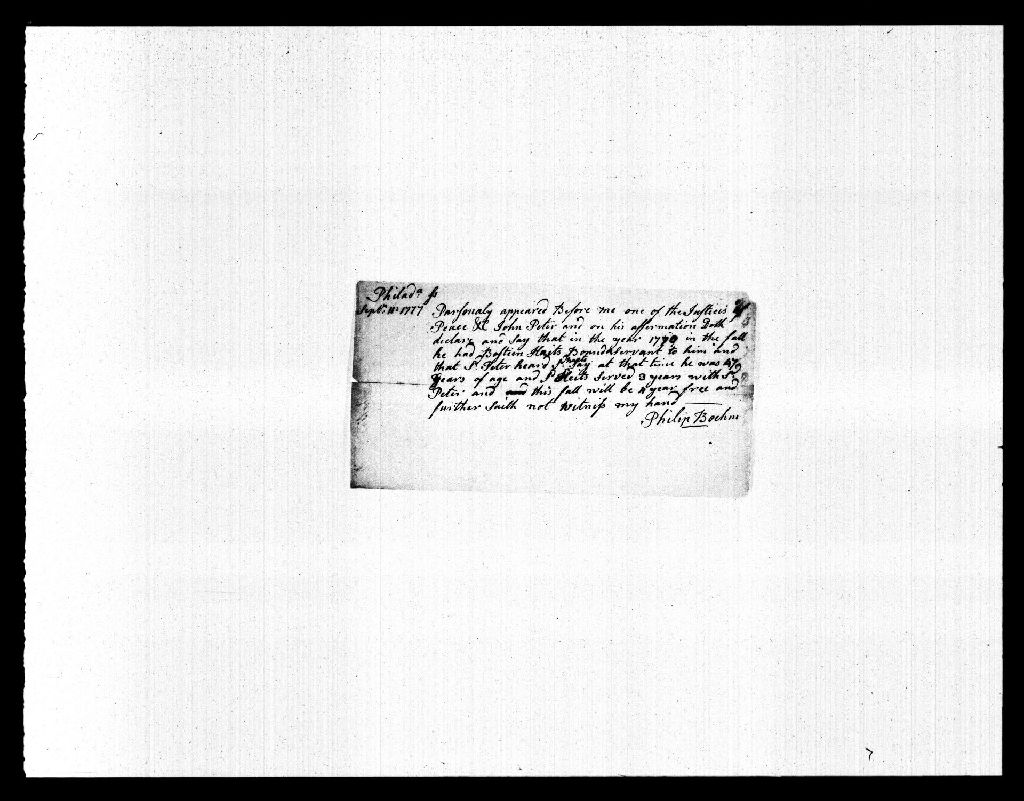 Philada. ss
Septr. 11t 1777 Parsonaly appeared Before me one of the Justices of
Peace &c John Peter and on his affermation Doth
declare and Say that in the year 1770 in the fall
he had Bastien Heits Bound a servant to him and
that Sd. Peter heard sd. Heits Say at that time he was
years of age and Sd. Heits Served 3 years with Sd.
Peter and this fall will be 4 year free and
further Saith not Witness my hand
Philip Boehm
7